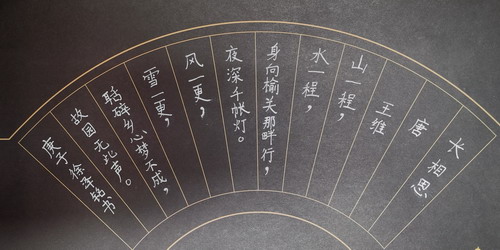 长相思
唐
王维
山一程，
水一程，
身向榆关那畔行，
夜深千帐灯。
风一更，
雪一更，
聒碎乡心梦不成，
故园无此声。
庚子徐子铭书